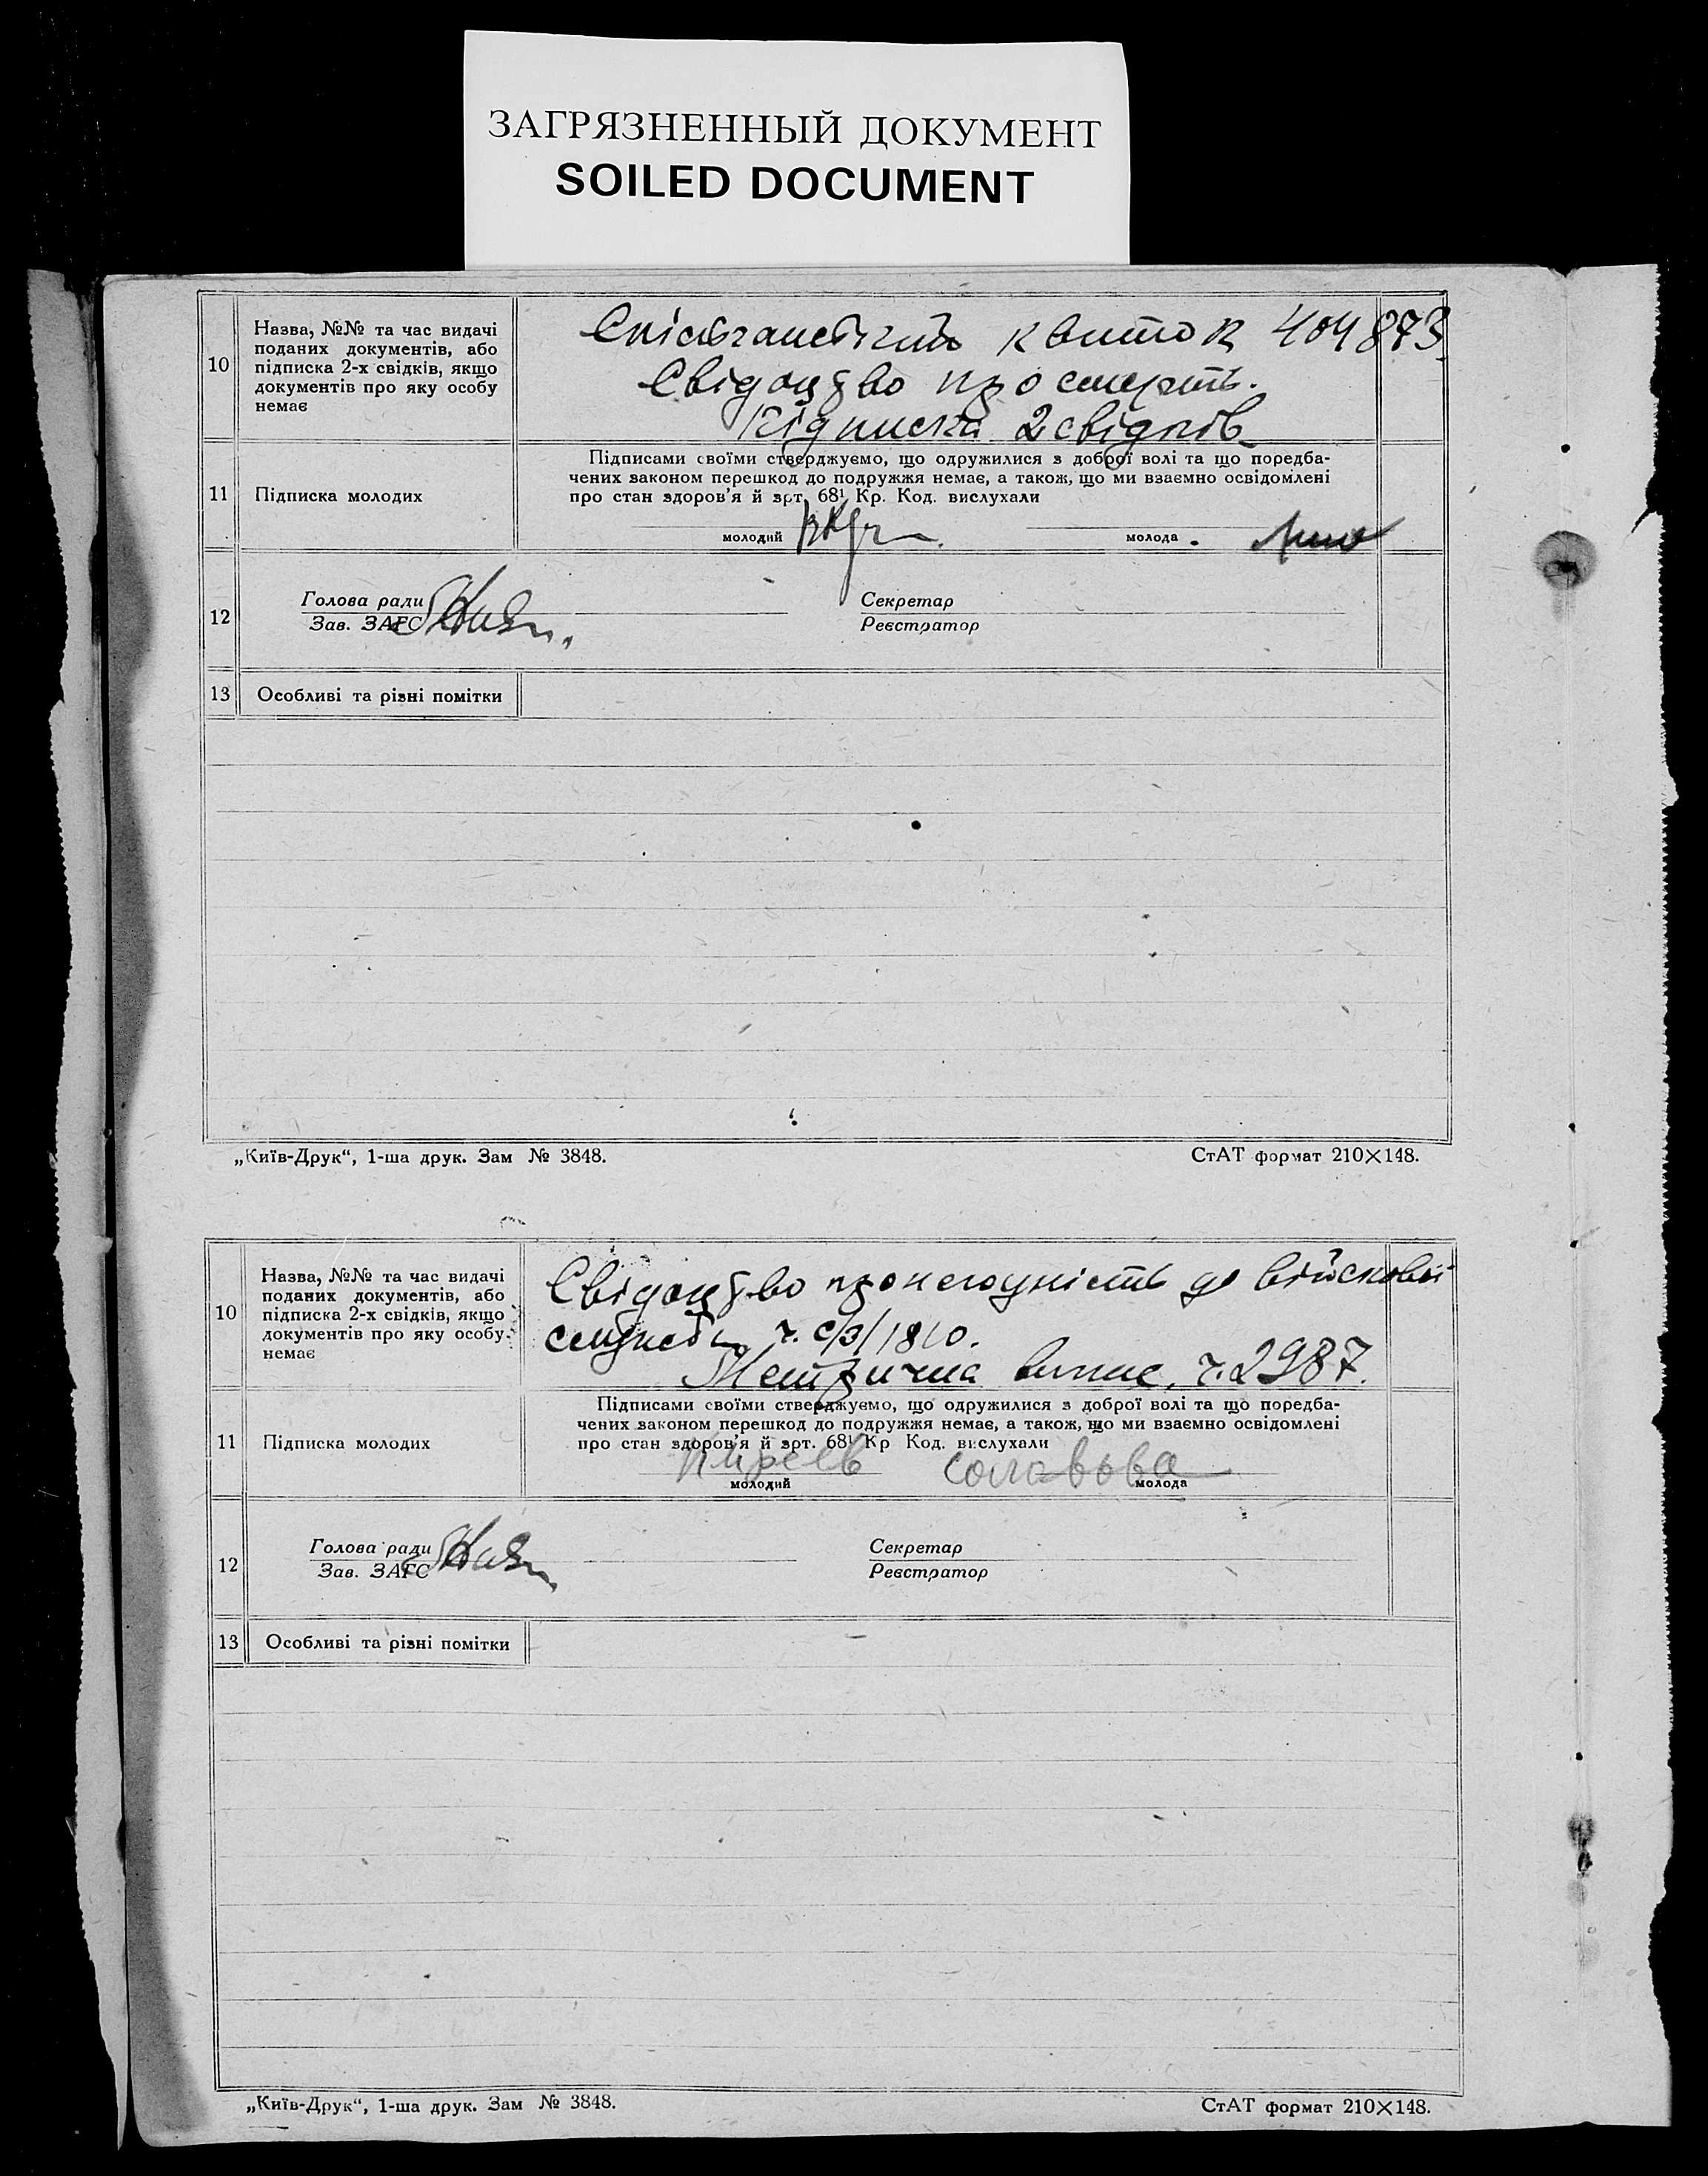 ЗАГРЯЗНЕННЫЙ ДОКУМЕНТ
SOILED DOCUMENT
10
Назва, №№ та час видачі
поданих документів, або
підписка 2-х свідків, якщо
документів про яку особу
немає
квиток 404873.
Свідоцтво про смерть.
Підписка 2 свідків
11
Підписка молодих
Підписами своїми стверджуємо, що одружилися з доброї волі та що поредба-
чених законом перешкод до подружжя немає, а також, що ми взаємно освідомлені
про стан здоров'я й зрт. 68¹ Кр. Код. вислухали
молодий
молода
12
Голова ради
Зав. ЗАГС
Секретар
Реєстратор
13
Особливі та різні помітки
„Київ-Друк“, 1-ша друк. Зам № 3848.
СтАТ формат 210×148.
10
Назва, №№ та час видачі
поданих документів, або
підписка 2-х свідків, якщо
документів про яку особу
немає
Свідоцтво про негодність до військовой
служби ч. с/э/1810.
Метрична випис. ч. 2987.
11
Підписка молодих
Підписами своїми стверджуємо, що одружилися з доброї волі та що поредба-
чених законом перешкод до подружжя немає, а також, що ми взаємно освідомлені
про стан здоров'я й зрт. 68¹ Кр Код. вислухали
молодий
молода
12
Голова ради
Зав. ЗАГС
Секретар
Реєстратор
13
Особливі та різні помітки
„Київ-Друк“, 1-ша друк. Зам № 3848.
СтАТ формат 210×148.